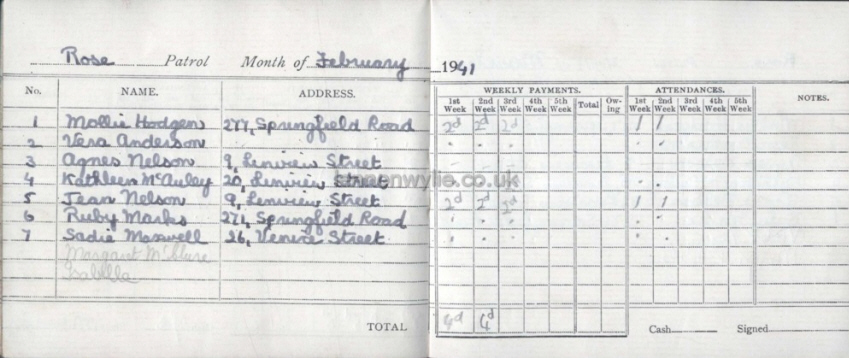 Rose Patrol Month of February 1941
No. NAME. ADDRESS. WEEKLY PAYMENTS. ATTENDANCES. NOTES.
1st Week 2nd Week 3rd Week 4th Week 5th Week Total Ow-ing 1st Week 2nd Week 3rd Week 4th Week 5th Week
1 Mollie Hodgen 277, Springfield Road 2d 2d 2d 1 1
2 Vera Anderson
3 Agnes Nelson 9, Lenview Street
4 Kathleen McAuley 20, Lenview Street
5 Jean Nelson 9, Lenview Street 2d 2d 2d 1 1
6 Ruby Marks 271, Springfield Road
7 Sadie Maxwell 26, Venice Street
Margaret McClure
Isabella
TOTAL 4d 4d Cash Signed